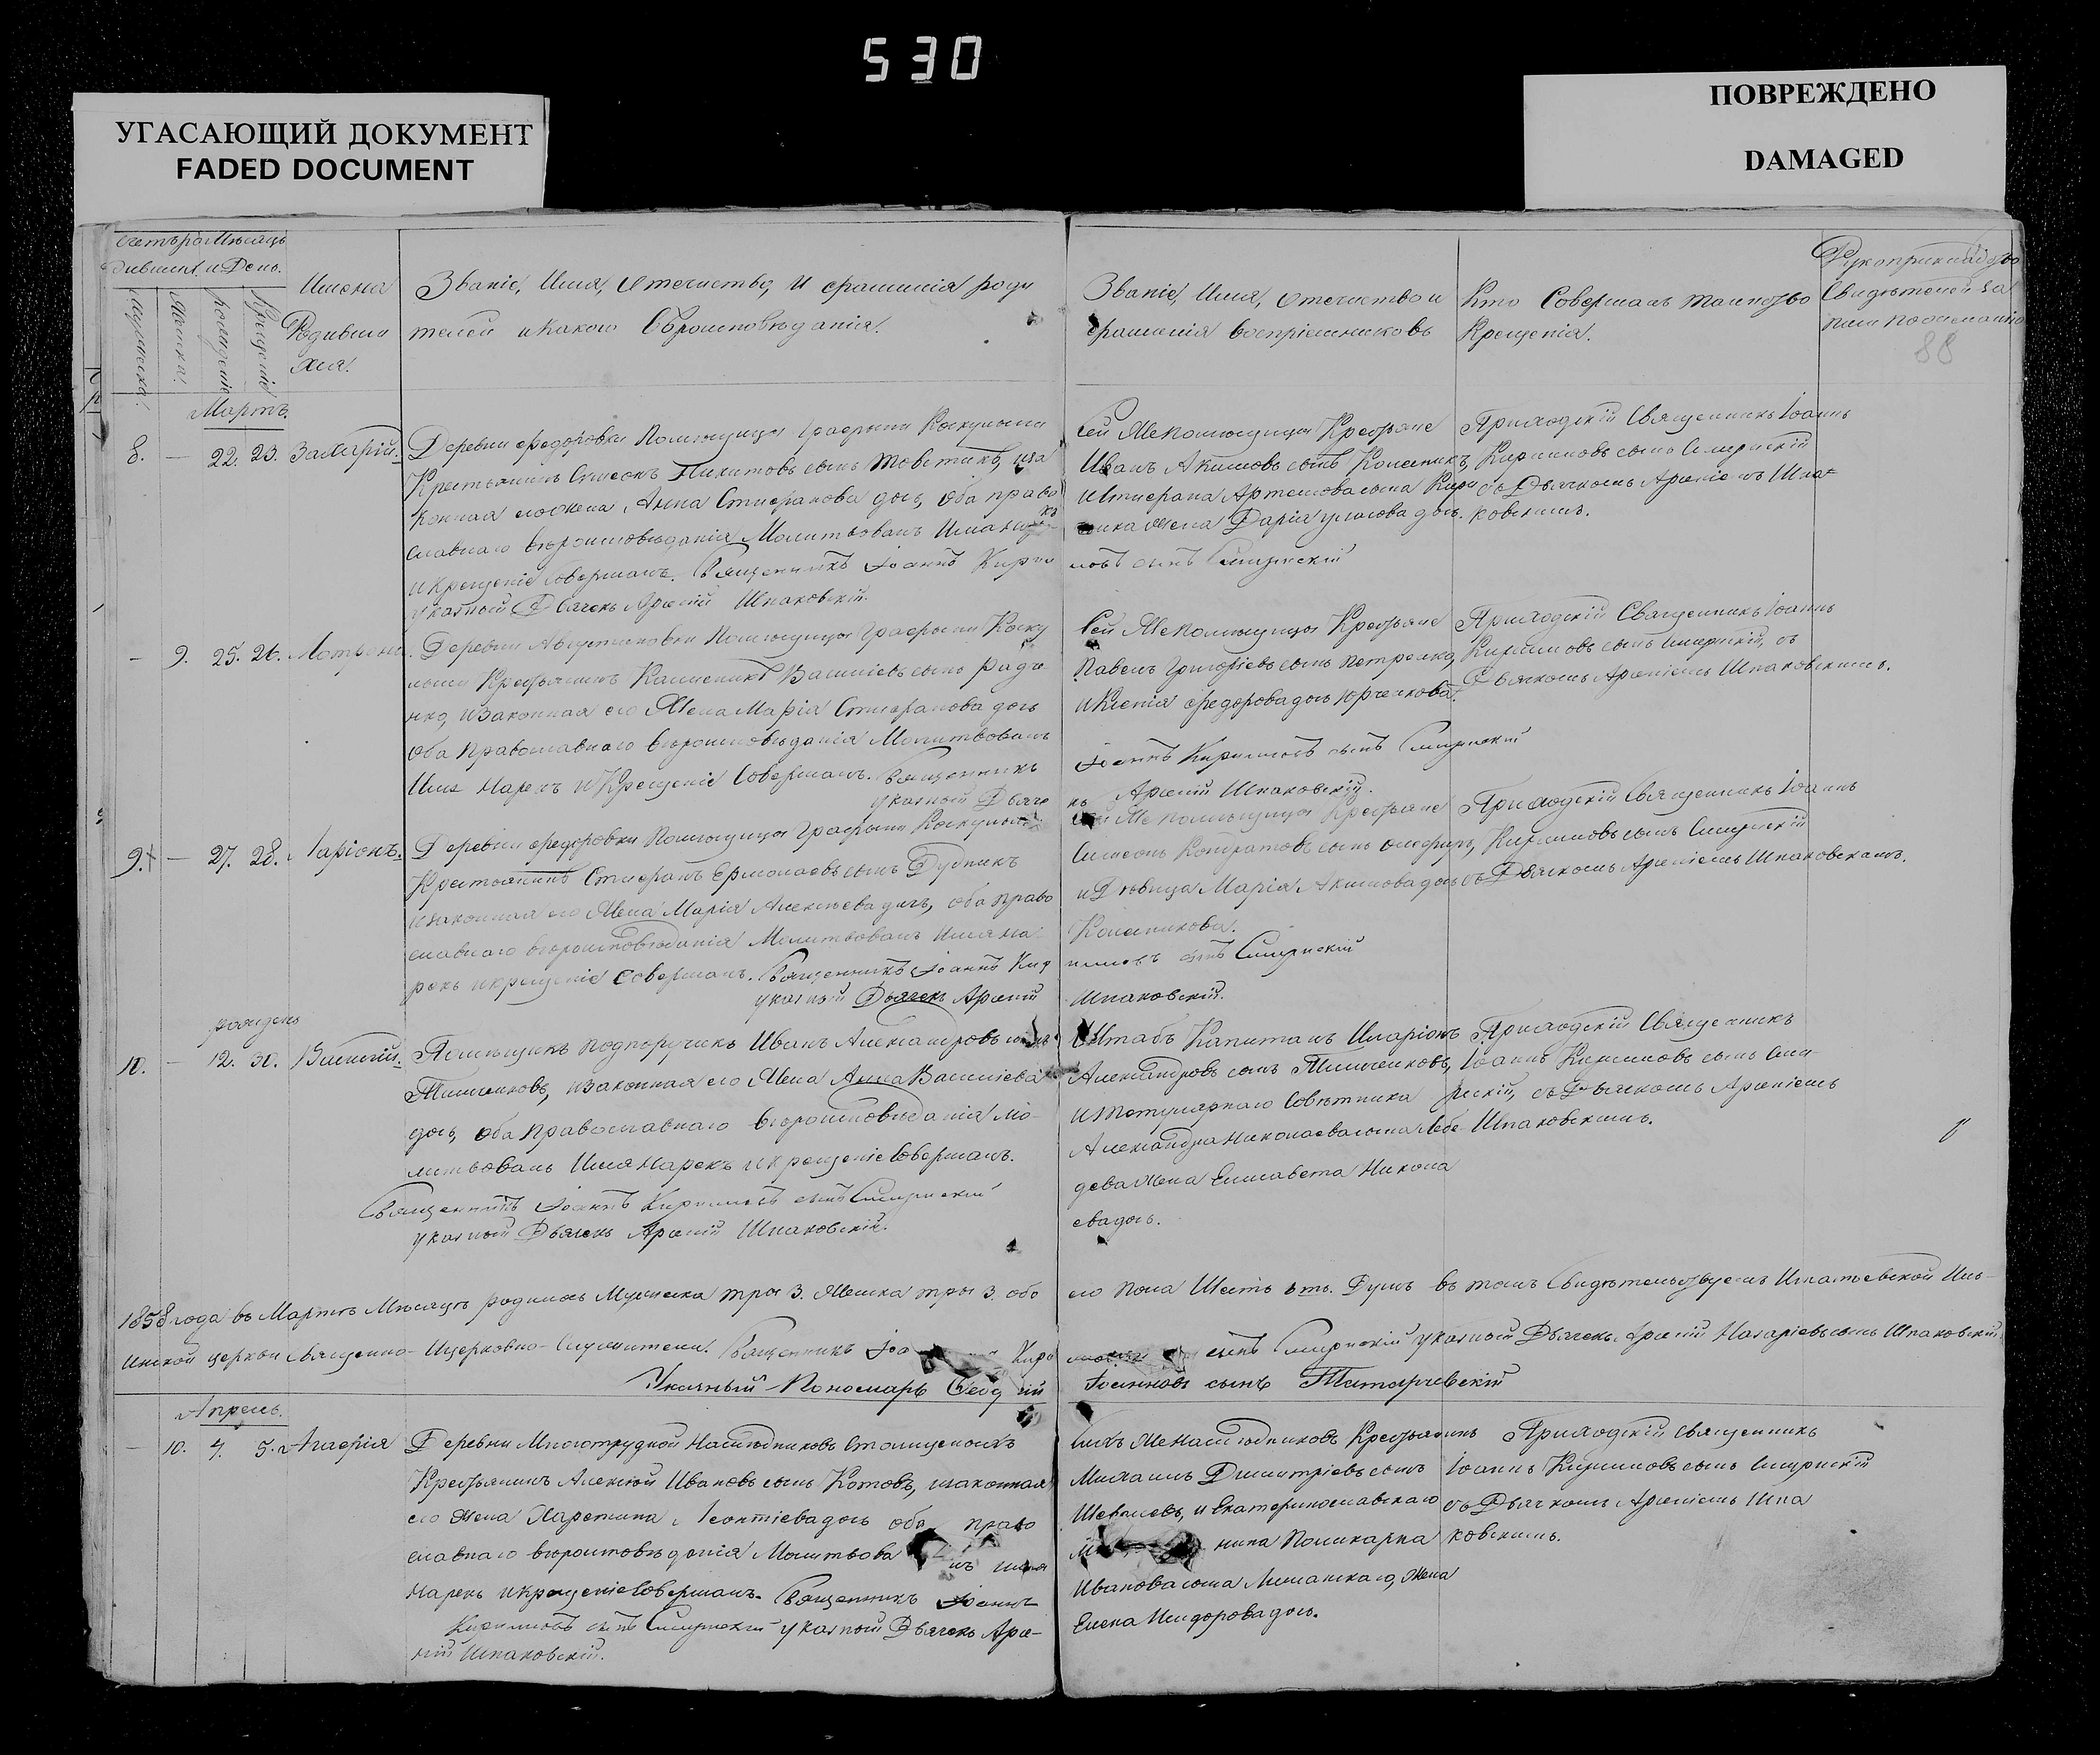 530
УГАСАЮЩИЙ ДОКУМЕНТ
FADED DOCUMENT
ПОВРЕЖДЕНО
DAMAGED
Счетъ ро Мѣсяцъ
дивших. и День.
Мужеска.
Женска.
Рожденіе
Крещеніе
Имена
Родивши
хся.
Званіе, Имя, Отечество, и фамилія роди
телей и какого Вѣроисповѣданія.
Званіе, Имя, Отечество и
фамилія воспріемниковъ
Кто Совершалъ таинство
Крещенія.
Рукоприкладство
Свидѣтелей за
писи по желанію
88
Мартъ.
8. — 22. 23. Захарій.
Деревни Федоровки Помѣщицы Графыни
Крестьянинъ Никитовъ сынъ Товстикъ, и за
конная его жена Анна Стиефанова дочь, оба право
славнаго вѣроисповѣданія Молитвовалъ Имя на
и Крещеніе Совершалъ. Священникъ Іоаннъ Кири
указный Дьячекъ Арсеній Шпаковскій.
Сей Же Помѣщицы Крестьяне
Иванъ Акимовъ сынъ
и Стиефана Артемова сына
жена Дарія дочь.
ловъ сынъ Смирнскій
Приходскій Священникъ Іоаннъ
Кириловъ сынъ Смирнскій
съ Дьячкомъ Арсеніемъ Шпа-
ковскимъ.
— 9. 25. 26. Мотрона.
Деревни Августиновки Помѣщицы Графыни
Крестьянинъ Василіевъ сынъ Радче
нко, и Законная его Жена Марія Стиефанова дочь
Оба Православнаго вѣроисповѣданія Молитвовалъ
Имя Нарекъ и Крещеніе Совершалъ. Священникъ
указный Дьяче
Сей Же Помѣщицы Крестьяне
Павелъ Григорьевъ сынъ Петренко,
и Ксенія Федорова дочь Юрченкова.
Іоаннъ Кириловъ сынъ Смирнскій
къ Арсеній Шпаковскій.
Приходскій Священникъ Іоаннъ
Кириловъ сынъ Смирнскій, съ
Дьячкомъ Арсеніемъ Шпаковскимъ.
9.+ — 27. 28. Ларіонъ.
Деревни Федоровки Помѣщицы Графыни
Крестьянинъ Стиефанъ Ермолаевъ сынъ Дудникъ
и законная его Жена Марія Алексѣева дочь, оба право
славнаго вѣроисповѣданія Молитвовалъ Имя на-
рекъ и крещеніе Совершалъ. Священникъ Іоаннъ Кир
указный Дьячекъ Арсеній
Сей Же Помѣщицы Крестьяне
Симеонъ Кондратовъ сынъ
и Дѣвица Марія Акимова дочь
иловъ сынъ Смирнскій
Шпаковскій.
Приходскій Священникъ Іоаннъ
Кириловъ сынъ Смирнскій
съ Дьячкомъ Арсеніемъ Шпаковскимъ.
10. — 12. 30. Василій.
Помѣщикъ Подпоручикъ Иванъ Александровъ сынъ
и Законная его Жена Анна Василіева
дочь, оба Православнаго вѣроисповѣданія Мо-
литвовалъ Имя Нарекъ и Крещеніе Совершалъ.
Священникъ Іоаннъ Кириловъ сынъ Смирнскій
указный Дьячекъ Арсеній Шпаковскій.
Штабъ Капитанъ Иларіонъ
Александровъ сынъ
и Титулярнаго Совѣтника
Александра Николаева сына Лебе-
дева Жена Елисавета Никола
ева дочь.
Приходскій Священникъ
Іоаннъ Кириловъ сынъ Сми-
рнскій, съ Дьячкомъ Арсеніемъ
Шпаковскимъ.
1858 года въ Мартѣ Мѣсяцѣ родилось Мужеска три 3. Женска три 3. обо
его Пола Шесть 6ть. Душъ въ томъ Свидѣтельствуемъ Игнатьевской
церкви Священно- и церковно- служители. Священникъ
сынъ Смирнскій указный Дьячекъ Арсеній Назаріевъ сынъ Шпаковскій
Указный Пономарь
Іоанновъ сынъ
Апрель.
— 10. 4. 5. Агафія
Деревни Многотрудной Наслѣдниковъ
Крестьянинъ Алексѣй Ивановъ сынъ Котовъ, и законная
его жена Харетина Леонтіева дочь оба право
славнаго вѣроисповѣданія Молитвова лъ имя
Нарекъ и Крещеніе Совершалъ. Священникъ Іоаннъ
Кириловъ сынъ Смирнскій указный Дьячекъ Арсе-
ній Шпаковскій.
Сихъ Же Наслѣдниковъ Крестьянинъ
Михаилъ Димитріевъ сынъ
и Екатеринославскаго
нина Поликарпа
Иванова сына жена
Елена Исидорова дочь.
Приходскій Священникъ
Іоаннъ Кириловъ сынъ Смирнскій
съ Дьячкомъ Арсеніемъ Шпа
ковскимъ.